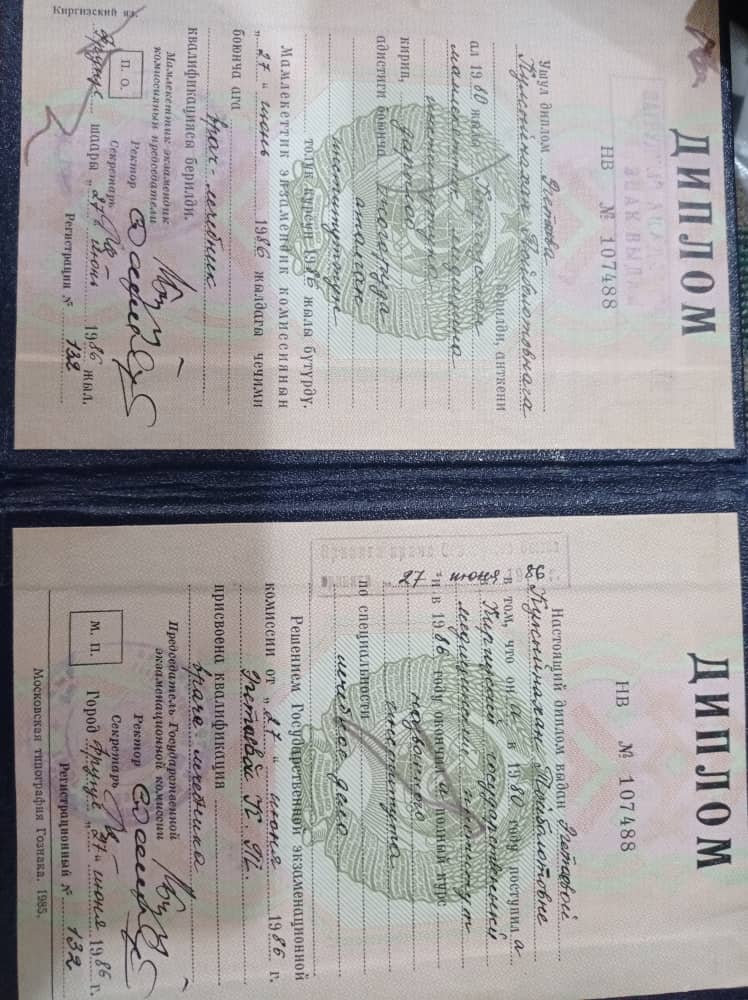 Киргизский яз.
ДИПЛОМ
НВ № 107488
Ушул диплом
берилди, анткени
ал 1980 жылы Кыргызстан
мамлекеттик медицина
институтуна
кирип,
адистиги боюнча
аталган
институттун
толук курсун 1986 жылы бүтүрдү.
Мамлекеттик экзамендик комиссиянын
„ 27 “ июнь 1986 жылдагы чечими
боюнча ага
врач-лечебник
квалификациясы берилди.
Мамлекеттик экзамендик
комиссиянын председатели
Ректор
Секретарь
П. О.
Фрунзе шаары „ 27 “ июнь 1986 жыл.
Регистрация № 132
ДИПЛОМ
НВ № 107488
Настоящий диплом выдан
в том, что он а в 1980 году поступил а
в Киргизский государственный
медицинский институт
и в 1986 году окончил а полный курс
института
по специальности
лечебное дело
Решением Государственной экзаменационной
комиссии от „ 27 “ июня 1986 г.
присвоена квалификация
врача-лечебника
Председатель Государственной
экзаменационной комиссии
Ректор
Секретарь
М. П.
Город Фрунзе „ 27 “ июня 1986 г.
Регистрационный № 132
Московская типография Гознака. 1985.